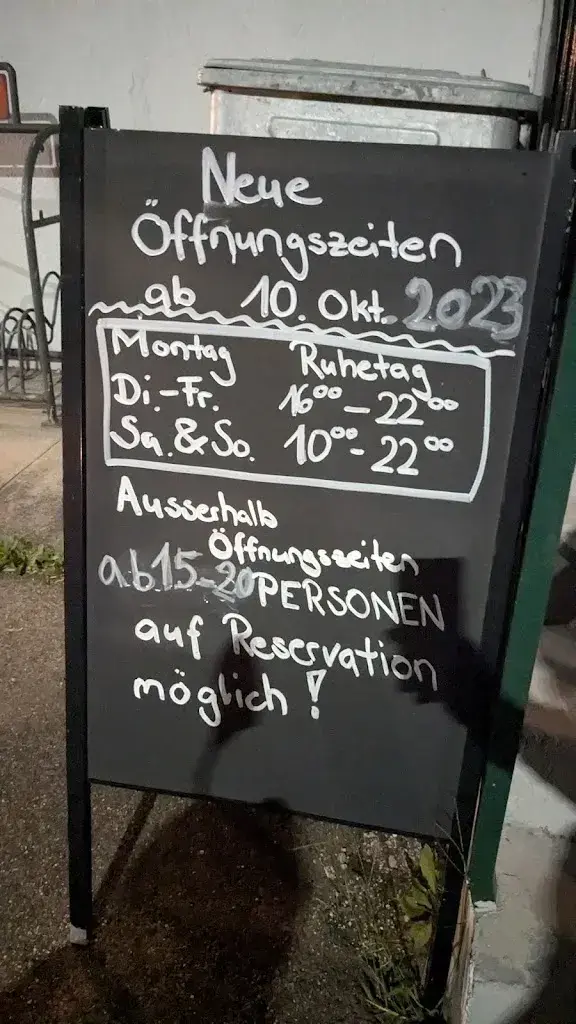 Neue
Öffnungszeiten
ab 10. Okt. 2023
Montag Ruhetag
Di.-Fr. 16⁰⁰-22⁰⁰
Sa.&So. 10⁰⁰-22⁰⁰
Ausserhalb
Öffnungszeiten
ab 15-20 PERSONEN
auf Reservation
möglich!